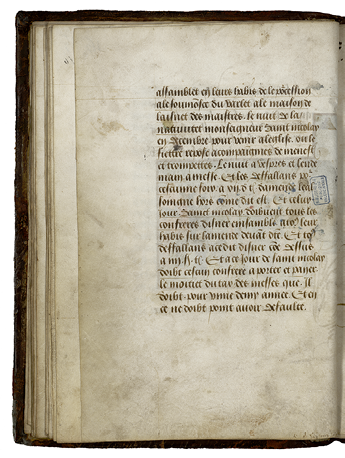 assamblet en leurs habis de le pcession
a le semonse du varlet a le maison de
lun des maistres. le nuit de la
nativitet monseigneur saint nicolay
en decembre pour venir a leglise. ou le
fiertre repose acompaignies de menest
et trompettes. Le nuit a vespres et lende
main a messe. Et les deffallans po
cescune fois a vj d t damende leal
songne hors come dit est. Et celuy
jour saint nicolay doibvent tous les
confreres disner ensamble avoec leur
habit sur lamende devat dte. Et tos
deffallans ace dit disner coe dessus
a iiij s t. Et a ce jour de saint nicolay
doibt cescun confrere a porter et paijer
le moitiet du tax des messes que il
doibt pour ynne demy annee. Et en
ce ne doibt point avoir defaulte.